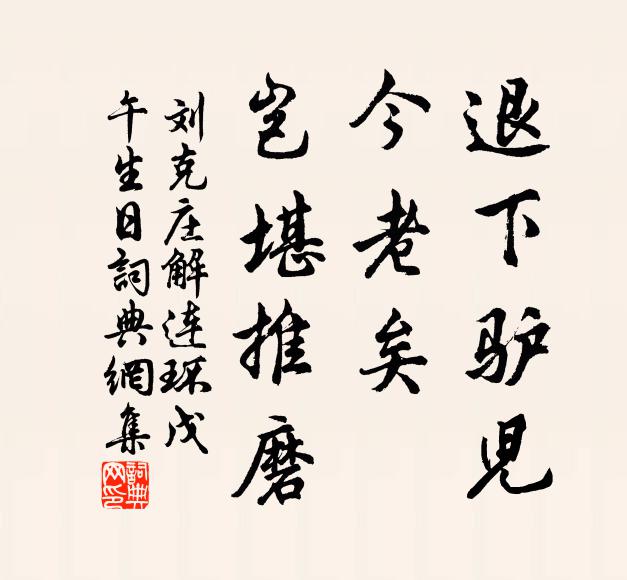 退下驴児
今老矣
岂堪推磨
刘克庄解连环戊
午生日詞典網集
詞典
网印